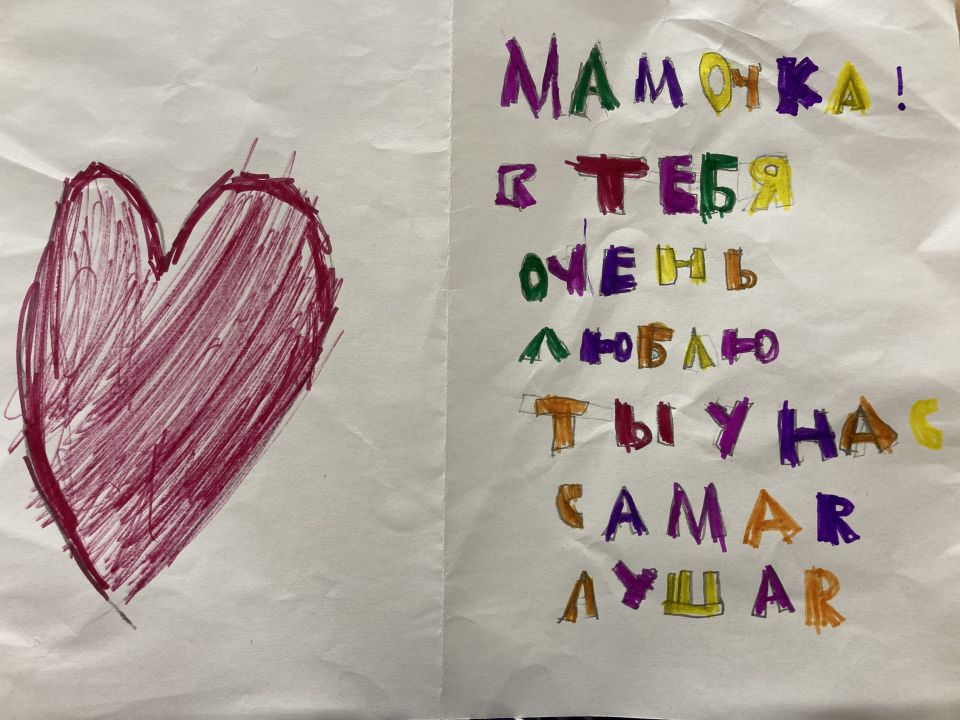 МАМОЧКА!
R ТЕБЯ
ОЧЕНЬ
ЛЮБЛЮ
ТЫ У НАС
САМАR
ЛУШАR